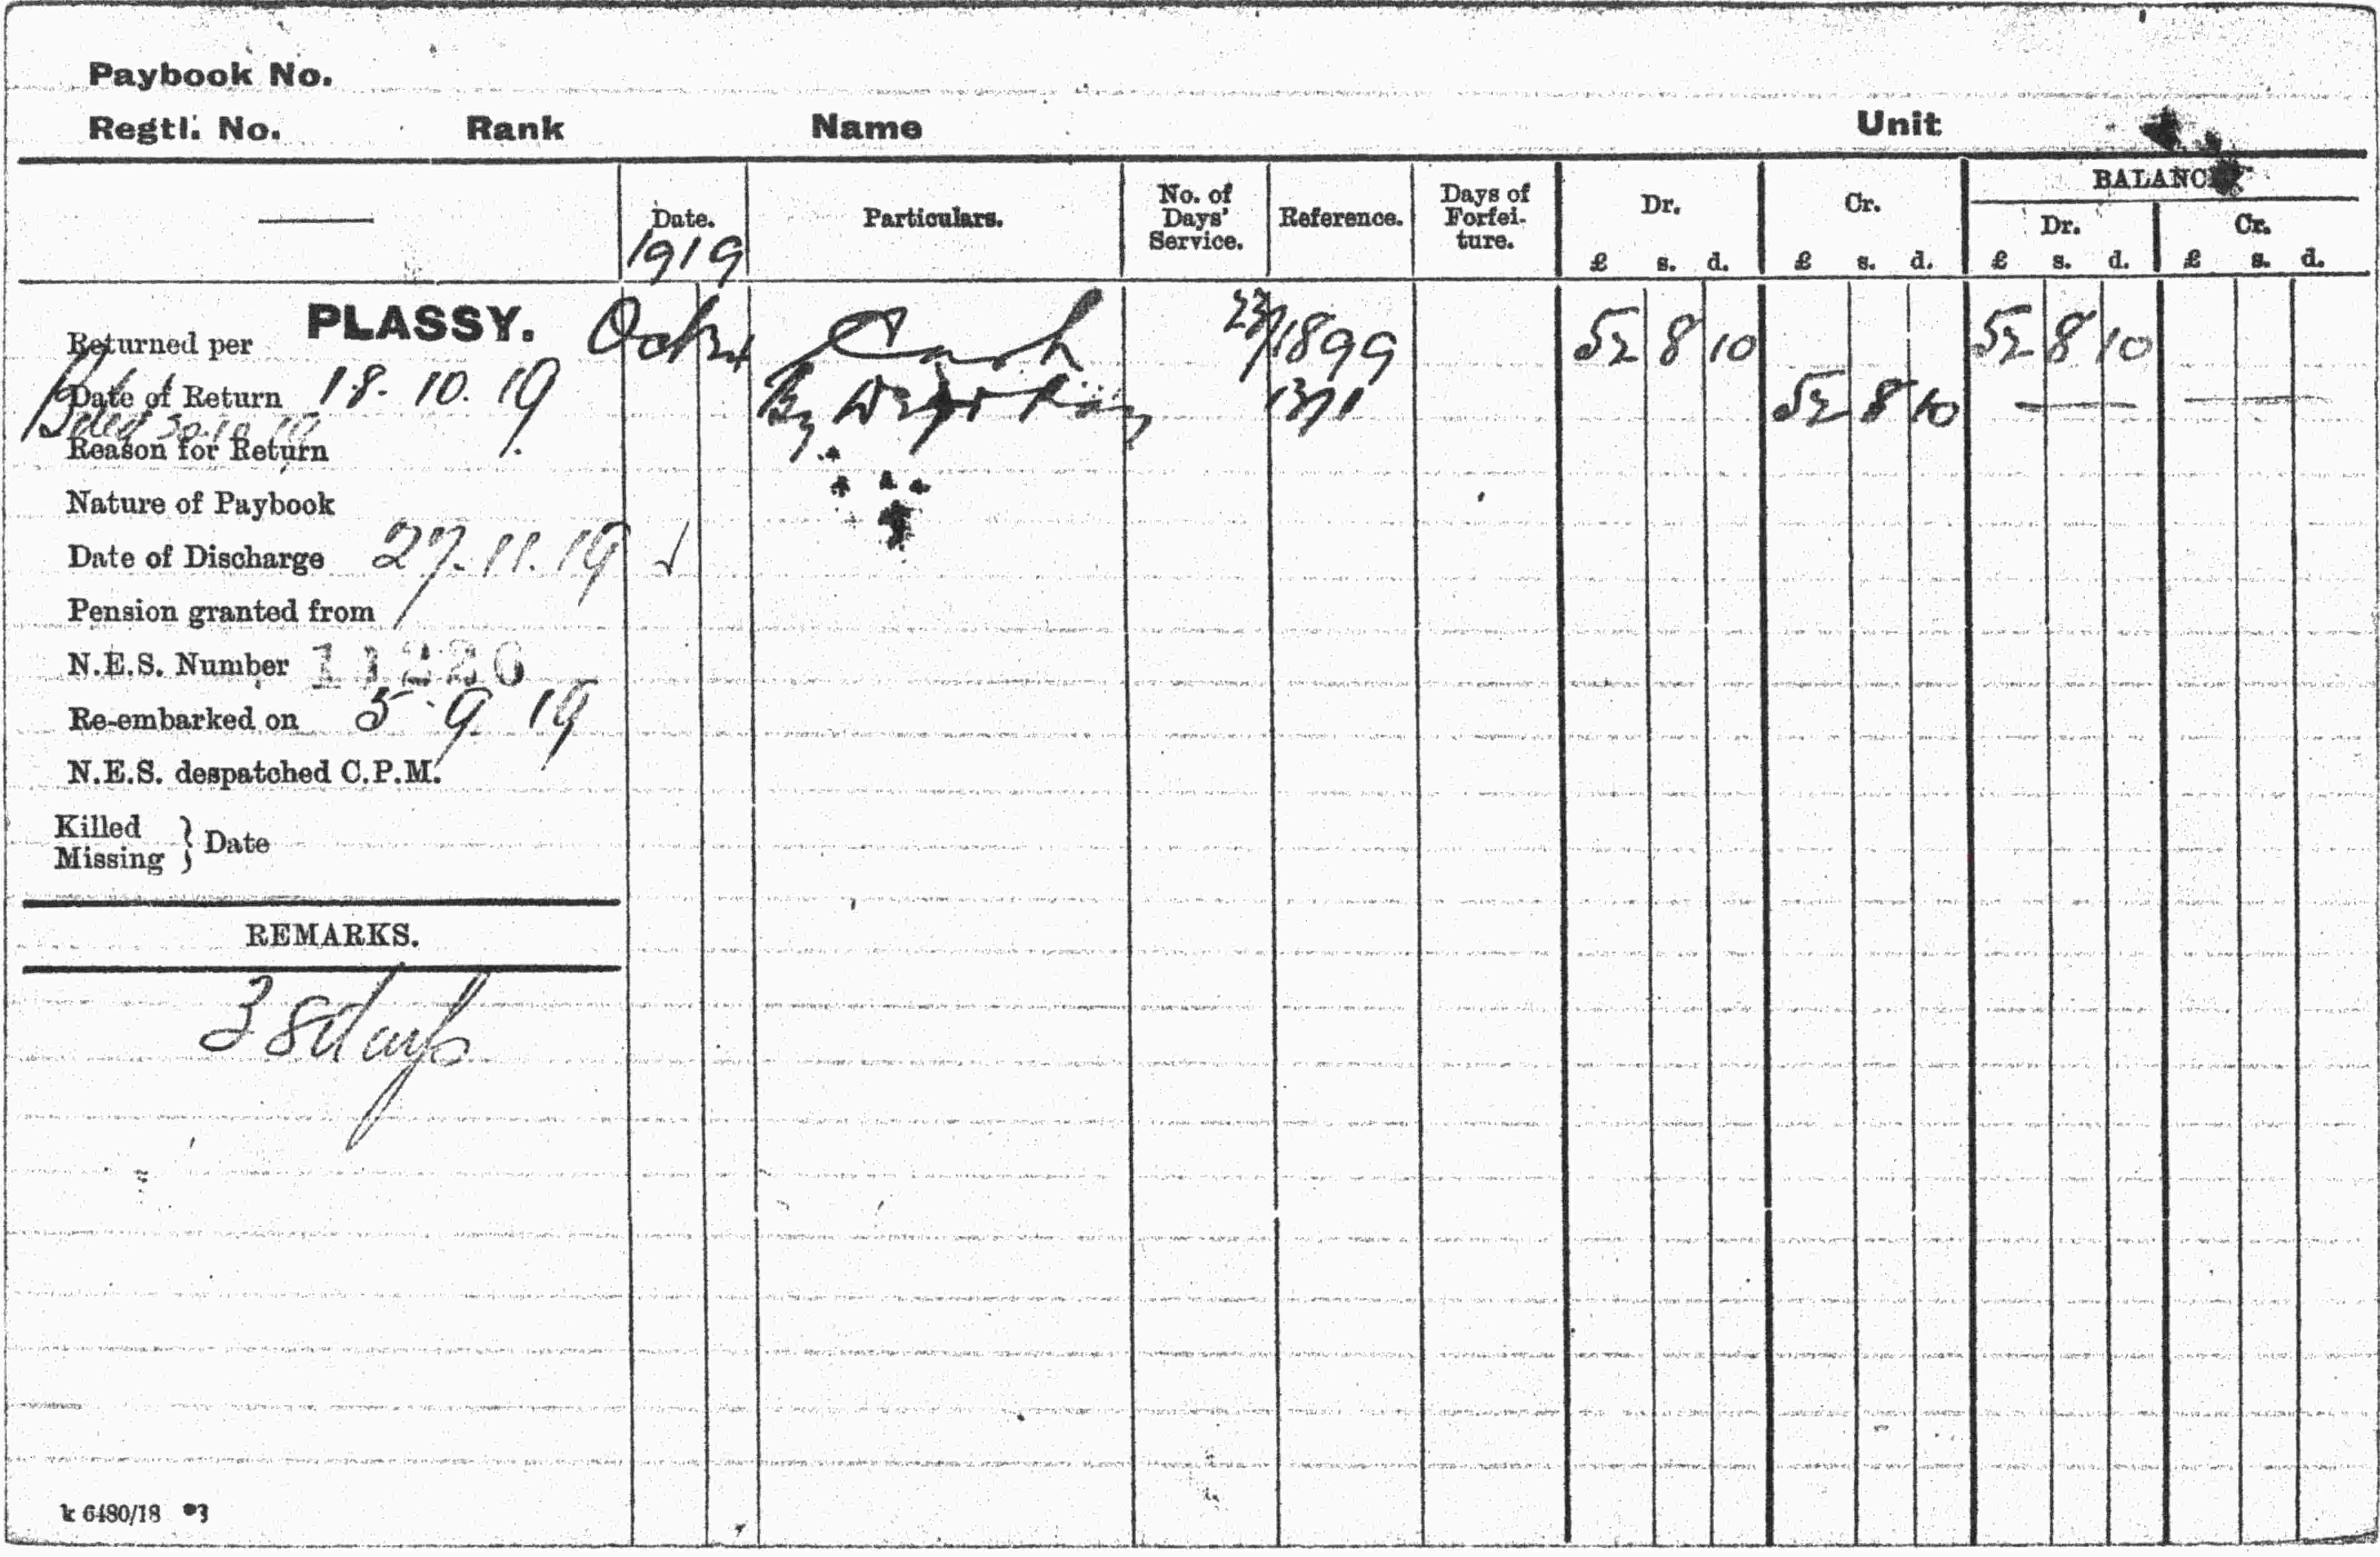 Paybook No.
Regtl. No. Rank Name Unit
Date. Particulars. No. of Days' Service. Reference. Days of Forfei- ture. Dr. Cr. BALANC
1919 Dr. Cr.
£ s. d. £ s. d. £ s. d. £ s. d.
Returned per PLASSY. Cash 23/1899 52 8 10 52 8 10
Date of Return 18. 10. 19 By 1371 52 8 10 — —
30.10.19
Reason for Return
Nature of Paybook
Date of Discharge 27.11.19 ✓
Pension granted from
N.E.S. Number 11226
Re-embarked on 5 9 19
N.E.S. despatched C.P.M.
Killed
Missing } Date
REMARKS.
38 days
k 6480/18